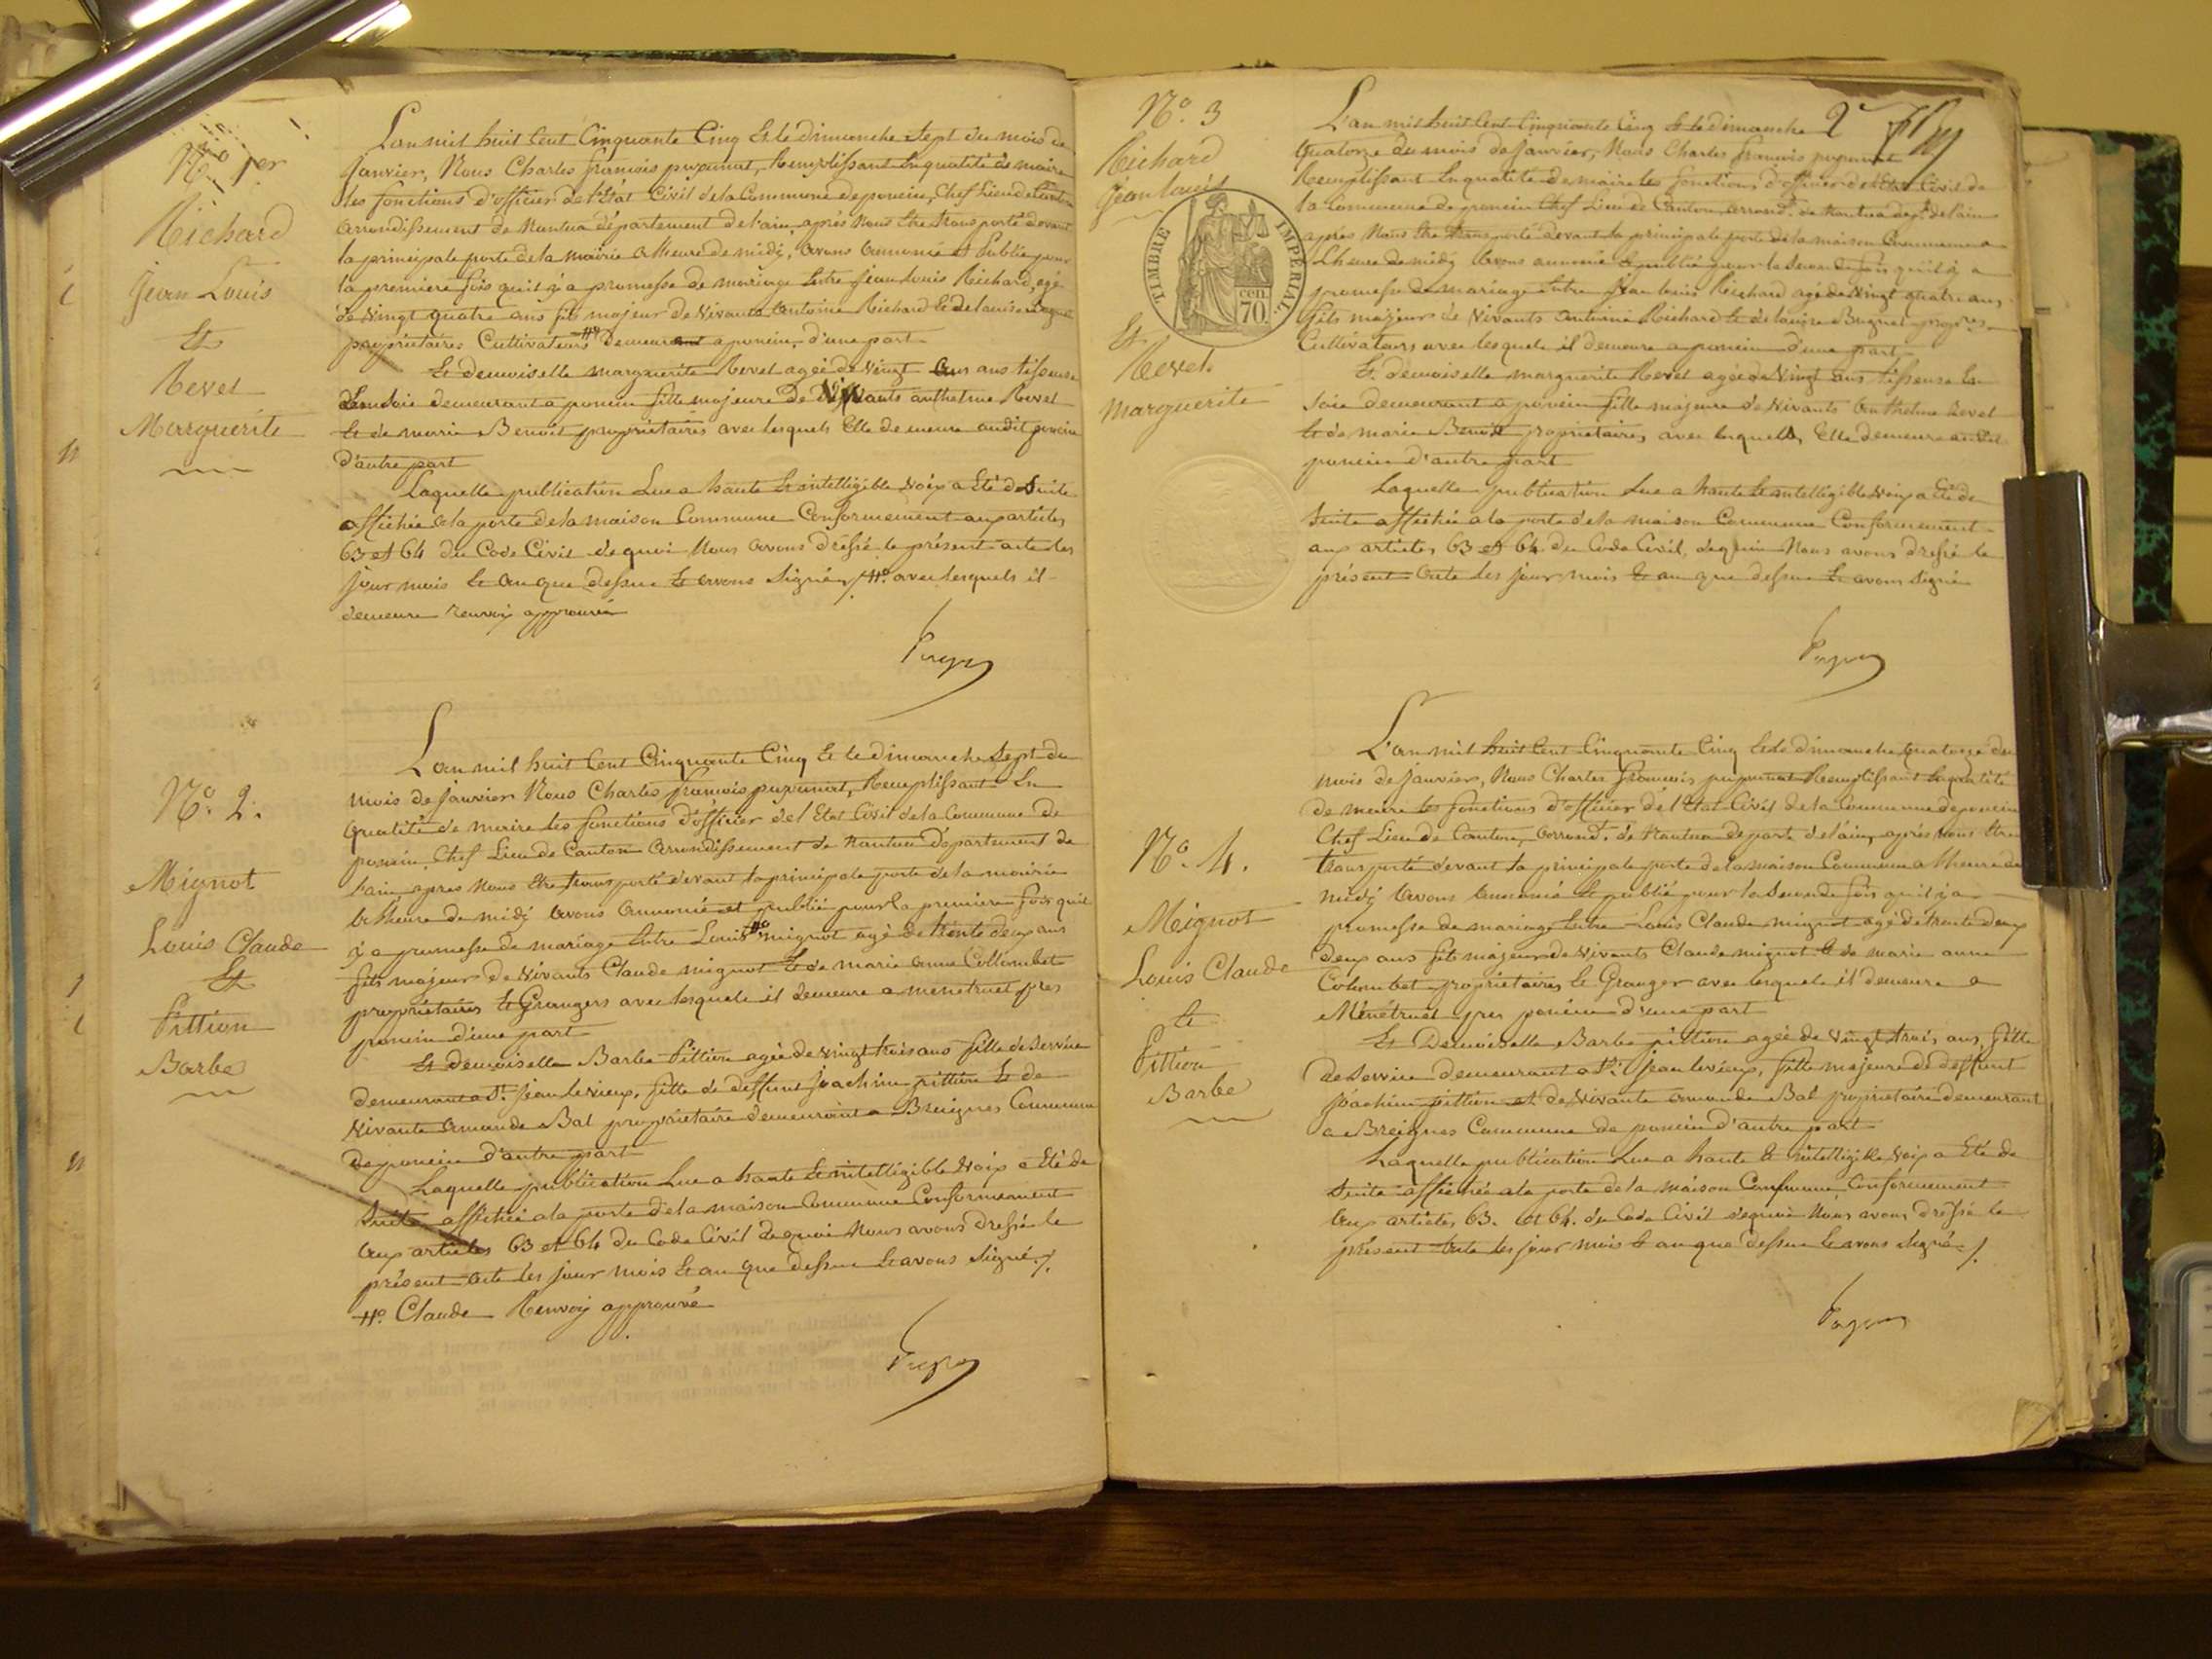 N.o 1er
Richard
Jean Louis
Et
Revel
Marguerite
L'an mil huit Cent Cinquante Cinq Et le dimanche Sept du mois de
Janvier, Nous Charles françois puyunat, Remplissant En qualité de maire
les fonctions d'officier de l'Etat Civil de la Commune de poncin, Chef Lieu de Canton
arrondissement de Nantua département de l'ain, après Nous Etre transporté devant
la principale porte de la mairie a l'heure de midi, avons annoncé Et Publié pour
la premiere fois qu'il y a promesse de mariage Entre Jean Louis Richard, agé
de vingt quatre ans fils majeur de Vivants antoine Richard Et de louise
propriétaires Cultivateurs #o demeurant a poncin, d'une part
Et demoiselle marguerite Revel agée de vingt ans tisseuse
En soie demeurant a poncin fille majeure de Vivants anthelme Revel
Et de marie Benoit propriétaires avec lesquels Elle demeure audit poncin
d'autre part
Laquelle publication Lue a haute Et intelligible voix a Eté de Suite
affichée a la porte de la maison Commune Conformement aux articles
63 et 64 du Code Civil de quoi Nous avons dressé le présent acte les
jour mois Et an que dessus Et avons Signé ./. #o avec lesquels il
demeure renvoi approuvé
N.o 2.
Mignot
Louis Claude
Et
Pittion
Barbe
L'an mil huit Cent Cinquante Cinq Et le dimanche Sept du
mois de Janvier Nous Charles françois puyunat, Remplissant En
qualité de maire les fonctions d'officier de l'Etat Civil de la Commune de
poncin Chef Lieu de Canton arrondissement de Nantua Département de
l'ain après Nous Etre transporté devant la principale porte de la mairie
a l'heure de midi avons annoncé et publié pour la premiere fois qu'il
y a promesse de mariage Entre Louis #o mignot agé de trente deux ans
fils majeur de Vivants Claude mignot Et de marie anne Collombet
propriétaires Et Grangers avec lesquels il demeure a menétruel près
poncin d'une part
Et demoiselle Barbe Pittion agée de vingt trois ans fille de service
demeurant a St. Jean le vieux, fille de deffunt Joachim pittion Et de
Vivante amande Bal propriétaire demeurant a Breignes Commune
de poncin d'autre part
Laquelle publication Lue a haute Et intelligible voix a Eté de
Suite affichée a la porte de la maison Commune Conformement
aux articles 63 et 64 du Code Civil de quoi Nous avons dressé le
présent acte les jour mois Et an que dessus Et avons Signé ./.
#o Claude Renvoi approuvé
2
N.o 3
Richard
Jean Louis
Et
Revel
Marguerite
TIMBRE IMPÉRIAL
cen.
70.
L'an mil huit Cent Cinquante Cinq Et le dimanche
quatorze du mois de Janvier, Nous Charles françois puyunat
Remplissant En qualité de maire les fonctions d'officier de l'Etat Civil de
la Commune de poncin Chef Lieu de Canton, arrondt. de Nantua dept. de l'ain
après Nous Etre transporté devant la principale porte de la maison Commune a
L'heure de midi avons annoncé Et publié pour la Seconde fois qu'il y a
promesse de mariage Entre Jean Louis Richard agé de vingt quatre ans,
fils majeur de Vivants antoine Richard Et de louise Bugnet propres
Cultivateurs avec lesquels il demeure a poncin d'une part
Et demoiselle marguerite Revel agée de vingt ans tisseuse En
soie demeurant a poncin fille majeure de Vivants anthelme Revel
Et de marie Benoit propriétaires avec lesquels, Elle demeure audit
poncin d'autre part
Laquelle publication Lue a haute Et intelligible voix a Eté de
Suite affichée a la porte de la maison Commune Conformement
aux articles 63 et 64 du Code Civil, de quoi Nous avons dressé le
présent acte les jour mois Et an que dessus Et avons Signé
N.o 4.
Mignot
Louis Claude
Et
Pittion
Barbe
L'an mil huit Cent Cinquante Cinq Et le dimanche quatorze du
mois de Janvier, Nous Charles françois puyunat Remplissant En qualité
de maire les fonctions d'officier de l'Etat Civil de la Commune de poncin
Chef Lieu de Canton, arrondt. de Nantua départ. de l'ain, après Nous Etre
transporté devant la principale porte de la maison Commune a l'heure de
midi avons annoncé Et publié pour la Seconde fois qu'il y a
promesse de mariage Entre Louis Claude mignot agé de trente deux
deux ans fils majeur de Vivants Claude mignot Et de marie anne
Colombet propriétaires Et Granger avec lesquels il demeure a
Ménétruel près poncin d'une part
Et Demoiselle Barbe pittion agée de vingt trois ans, fille
de Service demeurant a St. Jean le vieux, fille majeure de deffunt
Joachim pittion et de Vivante amande Bal propriétaire demeurant
a Breignes Commune de poncin d'autre part
Laquelle publication Lue a haute Et intelligible voix a Eté de
Suite affichée a la porte de la maison Commune, Conformement
aux articles 63. et 64. du Code Civil de quoi Nous avons dressé le
présent acte les jour mois Et an que dessus Et avons Signé ./.